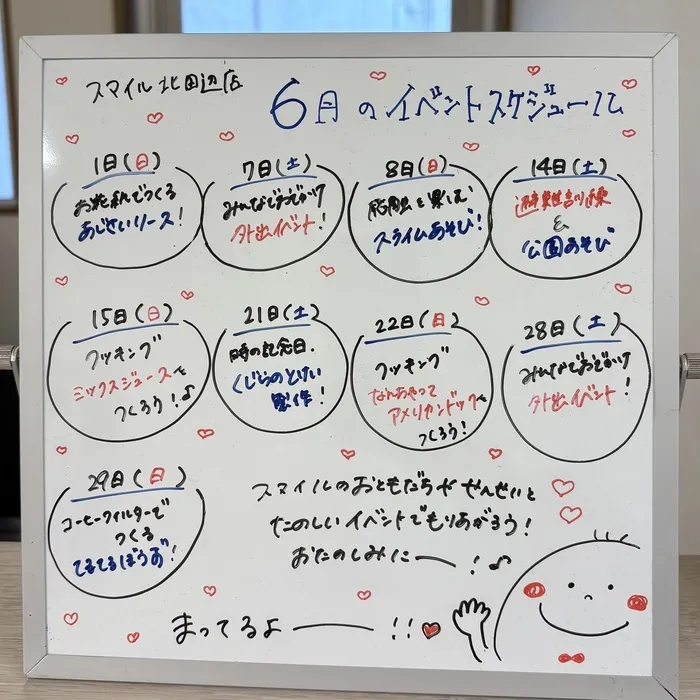 スマイル北田辺店
6月のイベントスケジュール
1日(日)
お花紙でつくる
あじさいリース!
7日(土)
みんなでおでかけ
外出イベント!
8日(日)
感触を楽しむ
スライムあそび!
14日(土)
避難訓練
&
公園あそび
15日(日)
クッキング
ミックスジュースを
つくろう!♪
21日(土)
時の記念日.
くじらのとけい
製作!
22日(日)
クッキング
なんちゃって
アメリカンドックを
つくろう!
28日(土)
みんなでおでかけ
外出イベント!
29日(日)
コーヒーフィルターで
つくる
てるてるぼうず!
スマイルのおともだちや せんせいと
たのしいイベントでもりあがろう!
おたのしみにー!♪
まってるよー!!